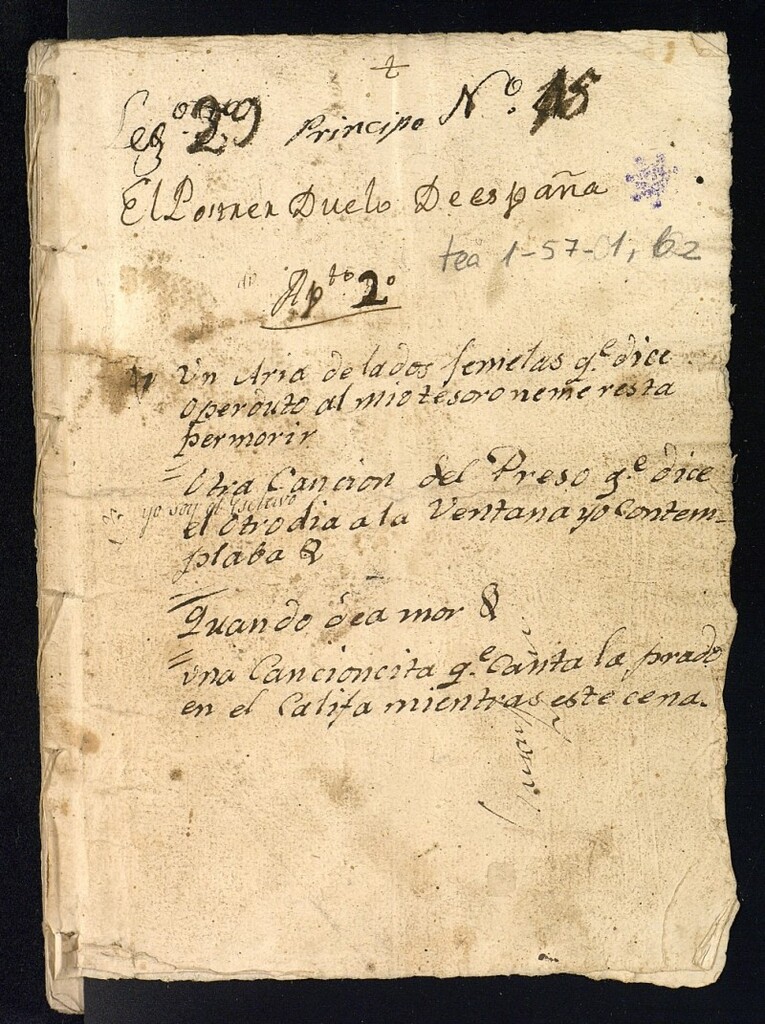 Leg.º 29 Principe N.º 15
El Postrer Duelo De españa
tea 1-57-01, b2
Ap.to 2º
Un Aria de la dos femelas q.e dice
o perduto al mio tesoro ne me resta
per morir
= Otra Cancion del Preso q.e dice
yo soy el Esclavo
el otro dia a la Ventana yo Contem-
plaba &
= Quando de amor &
= Una Cancioncita q.e Canta la prado
en el Califa mientras este cena.